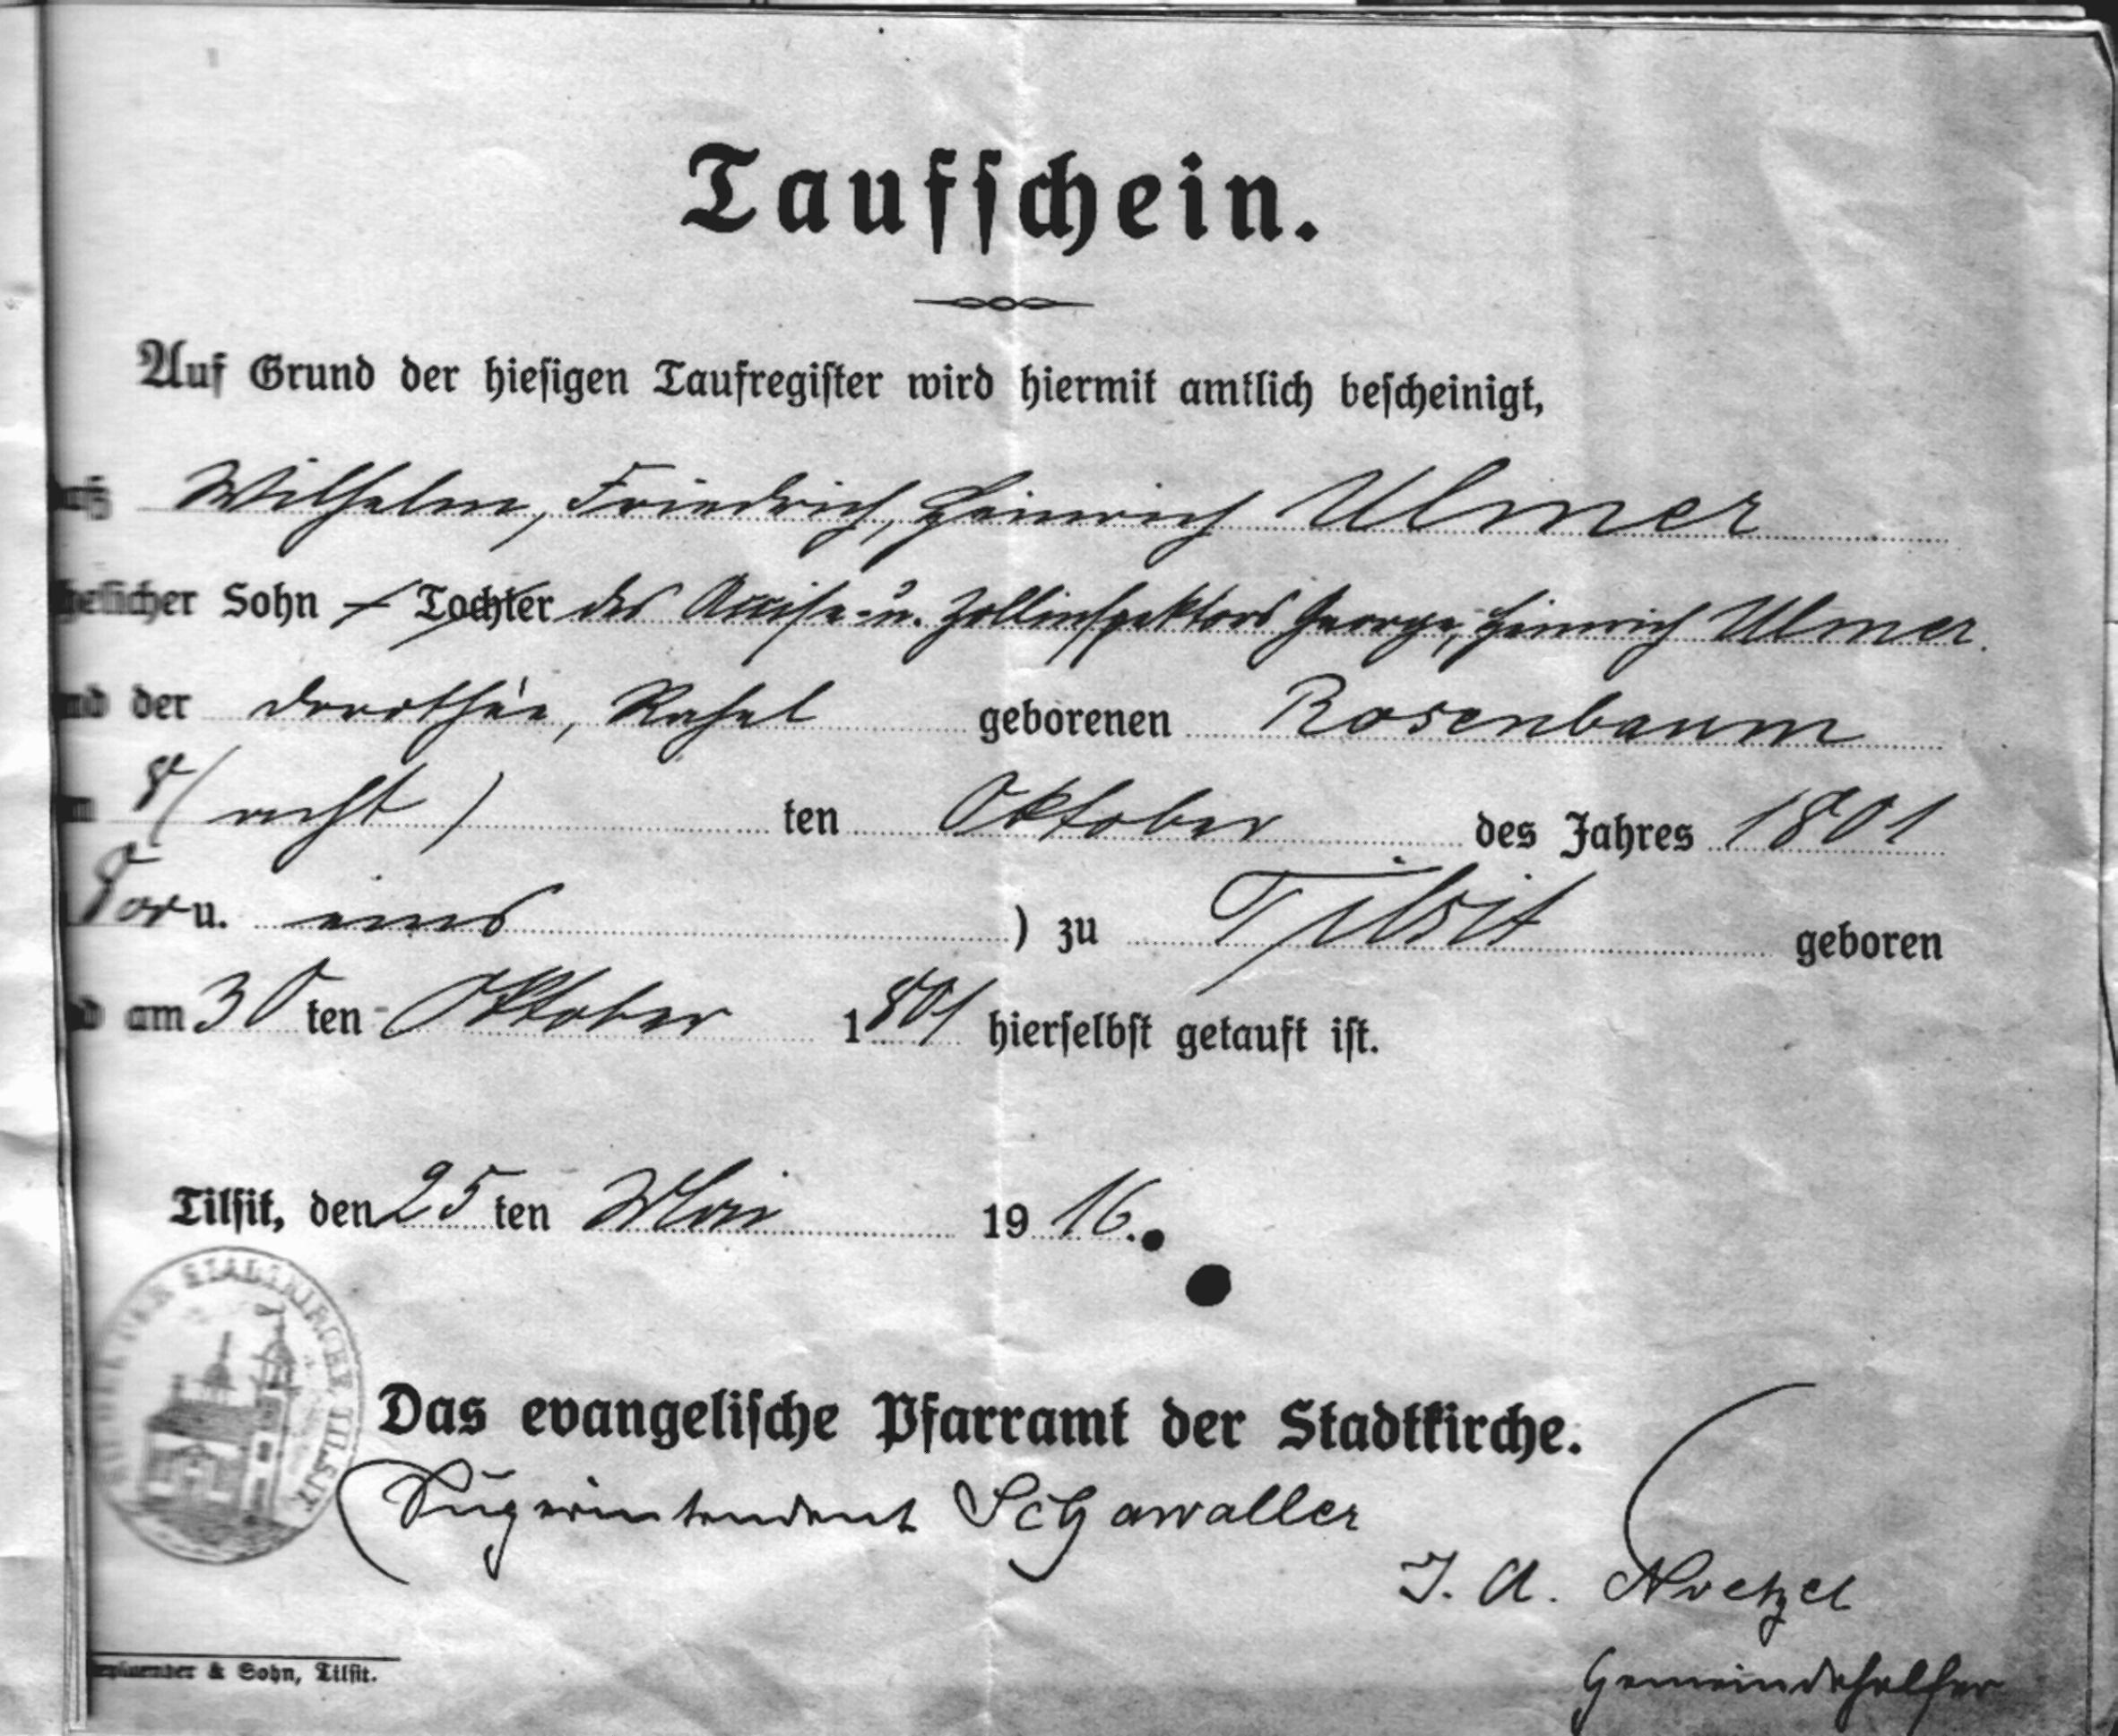 Taufschein.
Auf Grund der hiesigen Taufregister wird hiermit amtlich bescheinigt,
daß Wilhelm, Friedrich, Heinrich Ulmer
ehelicher Sohn / Tochter des Accise- u. Zollinspektors George, Heinrich Ulmer.
und der Dorothée, Rahel geborenen Rosenbaum
am 8 (acht) ten Oktober des Jahres 1801
u. eins ) zu Tilsit geboren
und am 30 ten Oktober 1801 hierselbst getauft ist.
Tilsit, den 25 ten Mai 1916.
STADTKIRCHE TILSIT
Das evangelische Pfarramt der Stadtkirche.
Superintendent Schawaller
J. A. Noetzel
Gemeindehelfer
& Sohn, Tilsit.